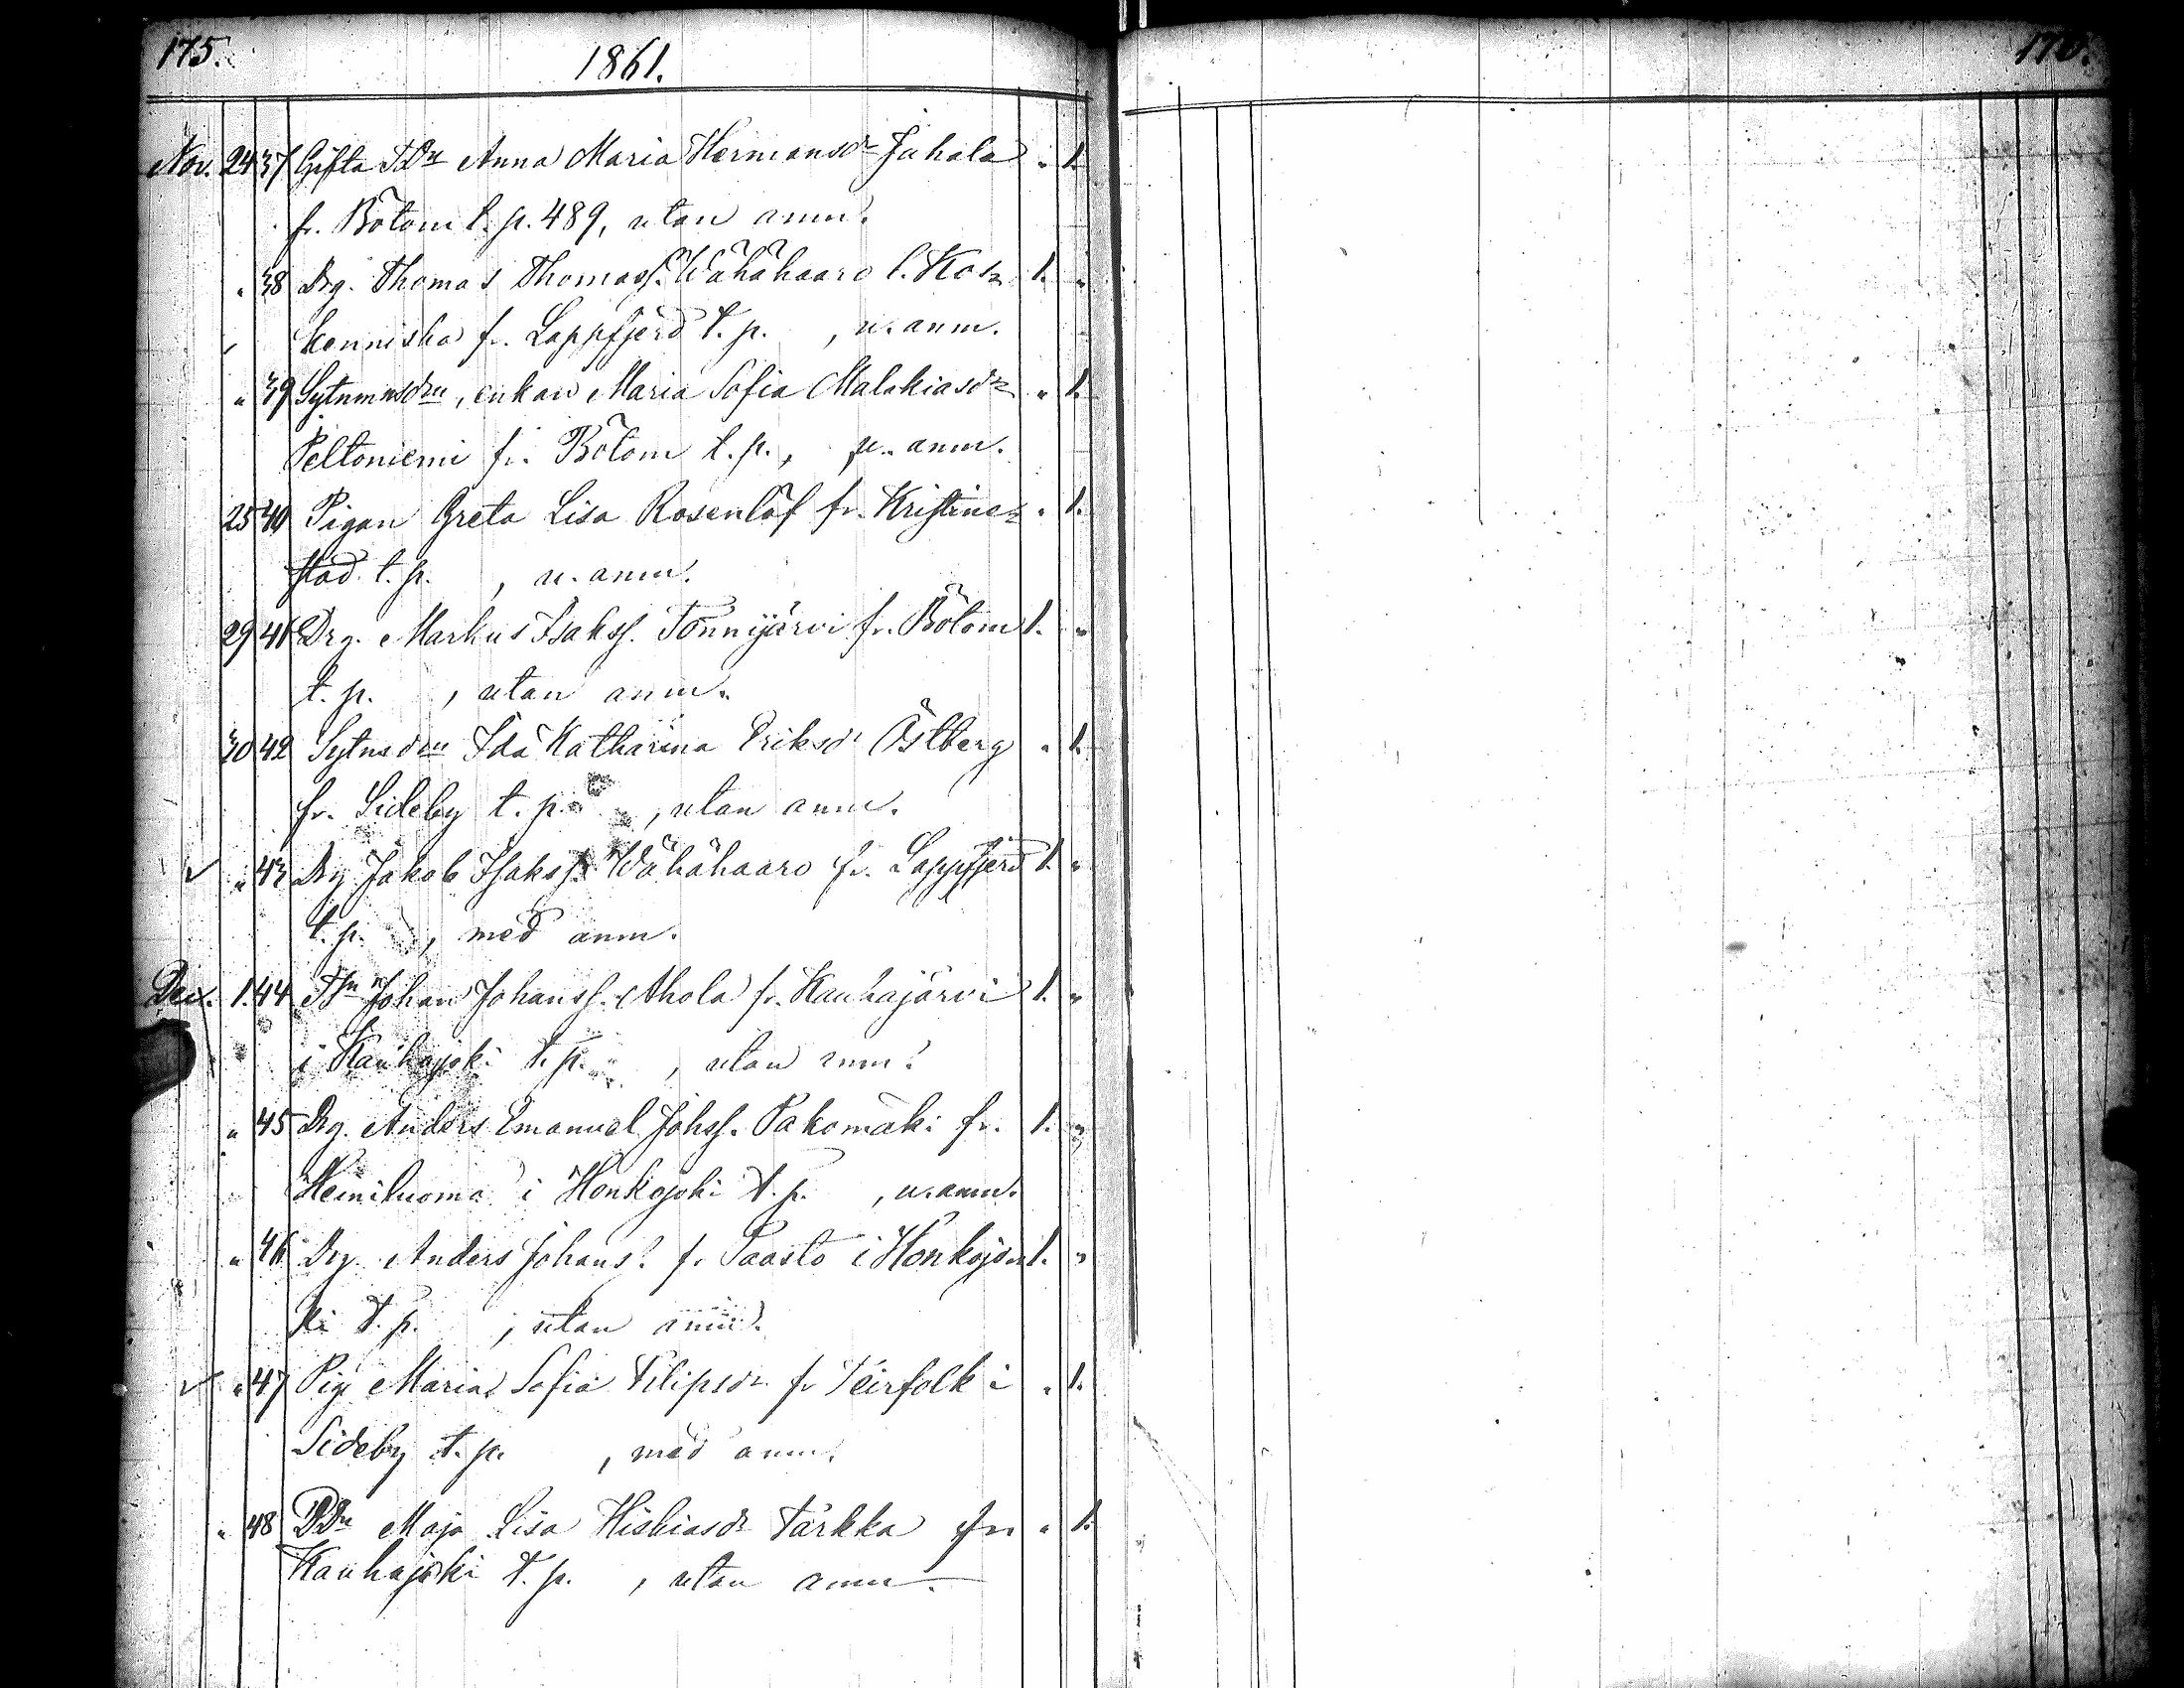 175.
1861.
176.
Nov. 24 37 Gifta TDn Anna Maria Hermansdr Juhola " 1.
fr. Bötom t. p. 489, utan anm.
" 38 Drg. Thomas Thomass. Wähähaaro l. Kos= 1. "
kenniska fr. Lappfjerd t. p. , u. anm.
" 39 Sytnmnsdrn, enkan Maria Sofia Malakiasdr " 1.
Peltoniemi fr. Bötom t. p., u. anm.
25 40 Pigan Greta Lisa Rosenlöf fr. Kristine= " 1.
stad t. p. , u. anm.
29 41 Drg. Markus Isakss. Tönnijärvi fr. Bötom 1. "
t. p. , utan anm.
30 42 Sytnsdrn Ida Katharina Eriksdr Östberg " 1.
fr. Sideby t. p. , utan anm.
" 43 Drg Jakob Isakss. Wähähaaro fr. Lappfjerd 1. "
t. p. , med anm.
Dec. 1. 44 Johan Johanss. Ahola fr. Kauhajärvi 1. "
i Kauhajoki t. p. , utan anm.
" 45 Drg. Anders Emanuel Johss. Pakomäki fr. 1. "
Heiniluoma i Honkajoki t. p. , u. anm.
" 46 Drg. Anders Johans. fr Paasto i Honkajo= 1. "
ki t. p. , utan anm.
" 47 Pig. Maria Sofia Filipsdr fr Teirfolk i " 1.
Sideby t. p. , med anm.
" 48 Maja Lisa Hiskiasdr Tärkka fr. " 1.
Kauhajoki t. p. , utan anm.